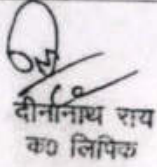 दीनानाथ राय
क0 लिपिक